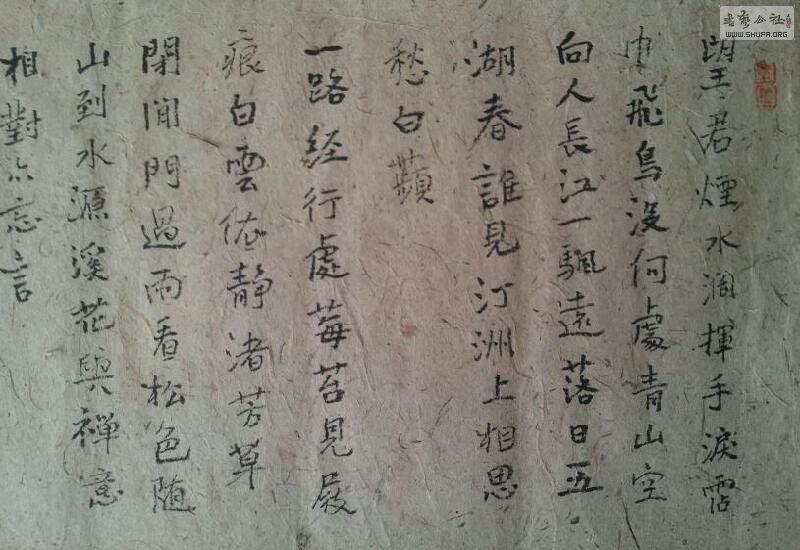 望君煙水濶揮手淚霑
巾飛鳥没何處青山空
向人長江一颿遠落日五
湖春誰見汀洲上相思
愁白蘋
一路经行處莓苔見屐
痕白雲依静渚芳草
閉閒門過雨看松色随
山到水源溪花與禅意
相對亦忘言
书艺公社
WWW.SHUFA.ORG